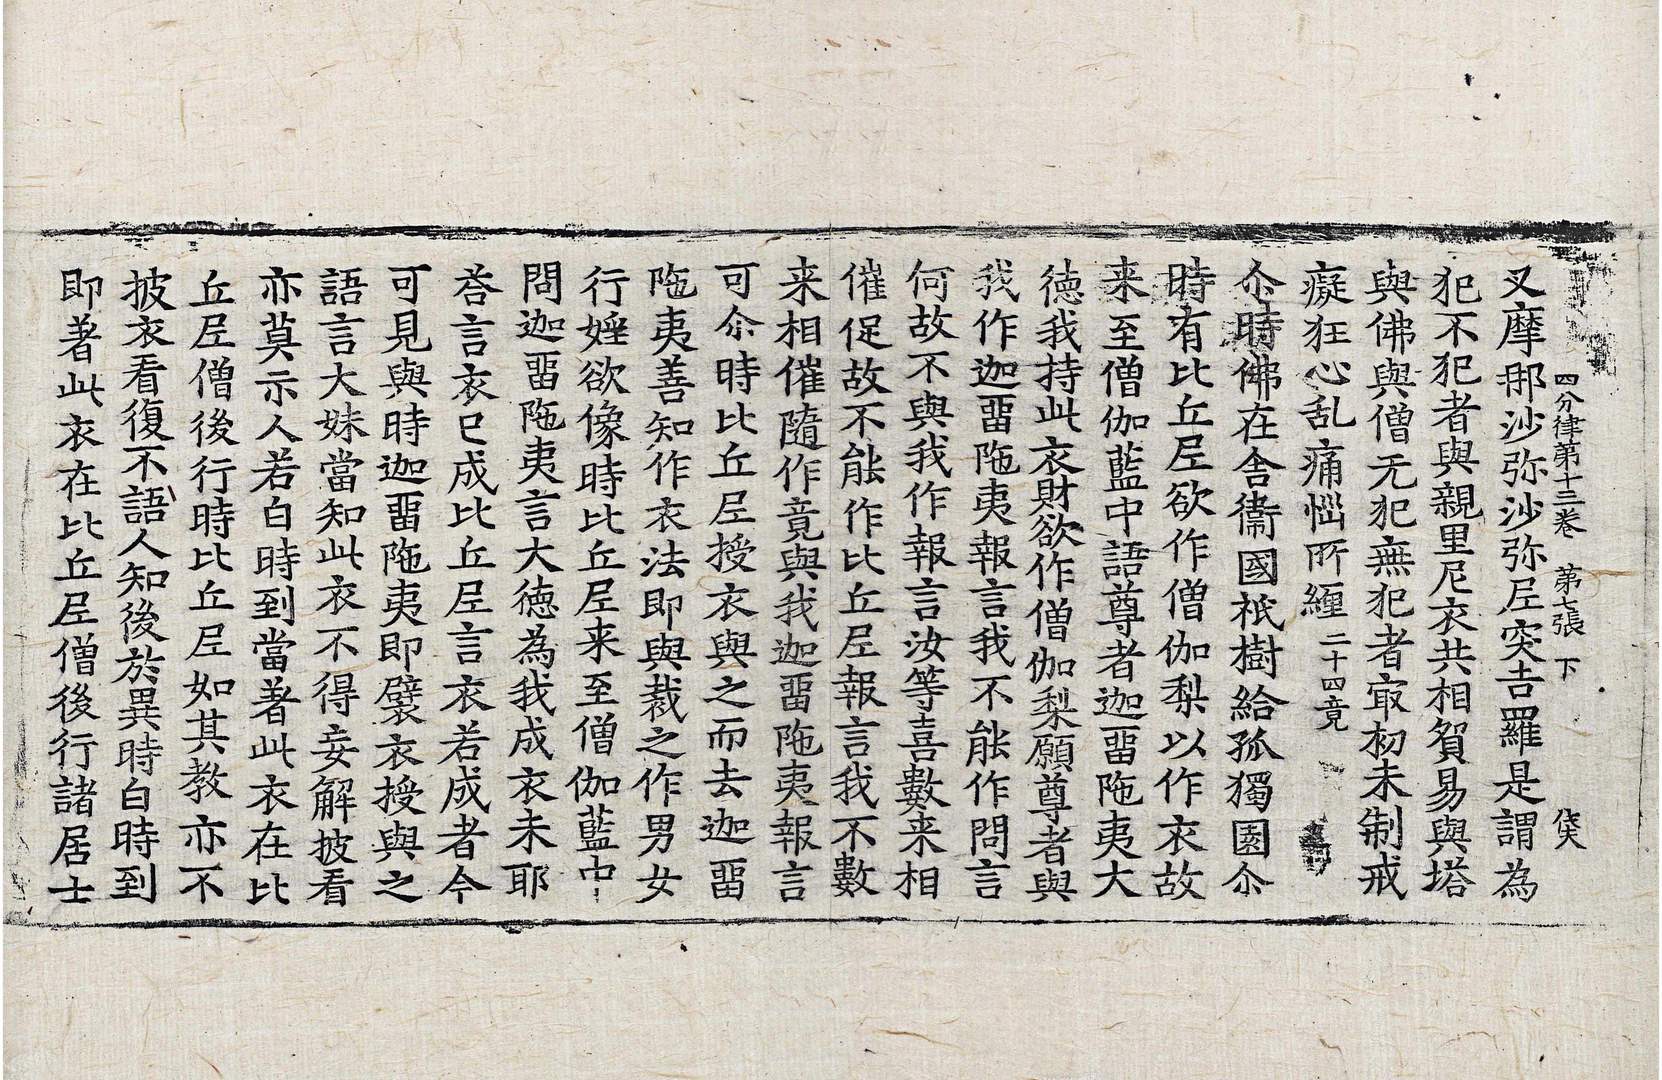 四分律第十三卷 第七張 下 伇
叉摩那沙弥沙弥𡰱突吉羅是謂為
犯不犯者與親里尼衣共相貿易與塔
與佛與僧无犯無犯者㝡初未制戒
癡狂心乱痛惱所纏二十四竟
尒時佛在舍衛國祇樹給孤獨園尒
時有比丘𡰱欲作僧伽梨以作衣故
来至僧伽藍中語尊者迦畱陁夷大
德我持此衣財欲作僧伽梨願尊者與
我作迦畱陁夷報言我不能作問言
何故不與我作報言汝等喜數来相
催促故不能作比丘𡰱報言我不數
来相催隨作竟與我迦畱陁夷報言
可尒時比丘𡰱授衣與之而去迦畱
陁夷善知作衣法即與裁之作男女
行婬欲像時比丘𡰱来至僧伽藍中
問迦畱陁夷言大德為我成衣未耶
荅言衣已成比丘𡰱言衣若成者今
可見與時迦畱陁夷即襞衣授與之
語言大妹當知此衣不得妄解披看
亦莫示人若白時到當著此衣在比
丘𡰱僧後行時比丘𡰱如其教亦不
披衣看復不語人知後於異時白時到
即著此衣在比丘𡰱僧後行諸居士